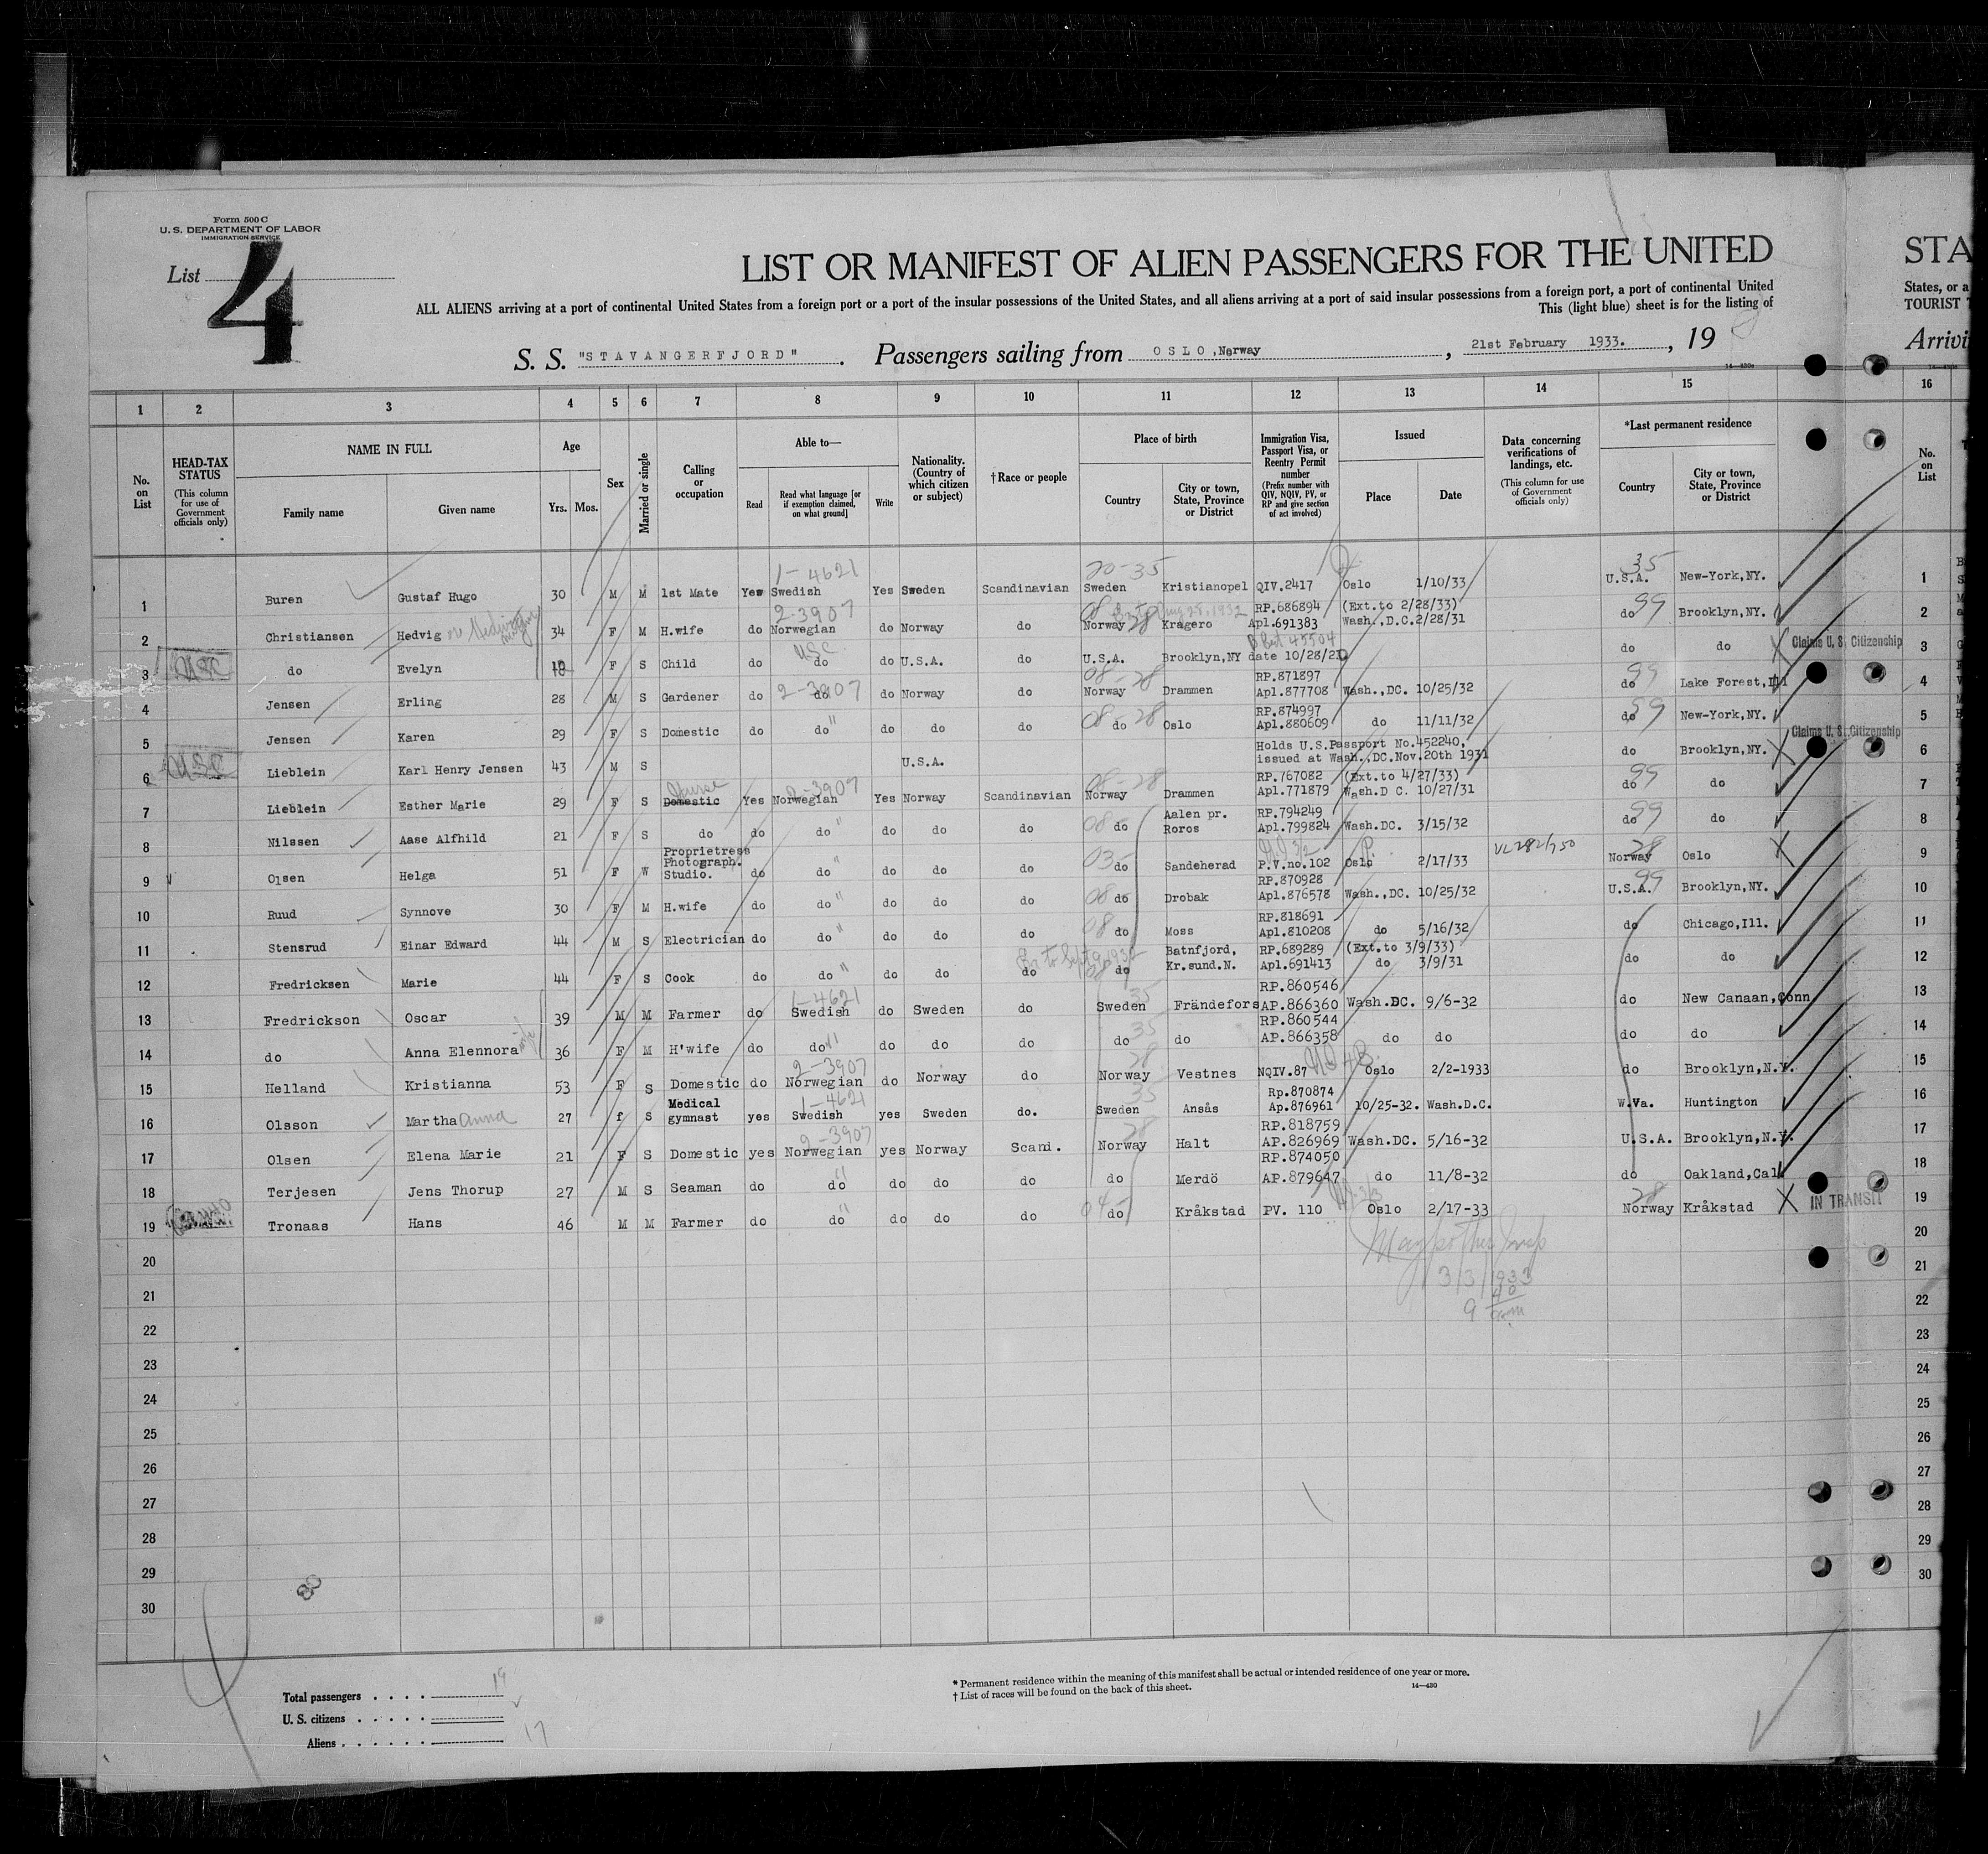 Form 500 C
U. S. DEPARTMENT OF LABOR
IMMIGRATION SERVICE
List 4
LIST OR MANIFEST OF ALIEN PASSENGERS FOR THE UNITED
STA
ALL ALIENS arriving at a port of continental United States from a foreign port or a port of the insular possessions of the United States, and all aliens arriving at a port of said insular possessions from a foreign port, a port of continental United
States, or a
This (light blue) sheet is for the listing of
TOURIST
S. S. "STAVANGERFJORD". Passengers sailing from OSLO, Norway, 21st February 1933., 19
Arrivi
14—430
1 2 3 4 5 6 7 8 9 10 11 12 13 14 15 16
No. on List
HEAD-TAX STATUS
(This column for use of Government officials only)
NAME IN FULL
Family name Given name
Age
Yrs. Mos.
Sex
Married or single
Calling or occupation
Able to—
Read
Read what language [or if exemption claimed, on what ground]
Write
Nationality. (Country of which citizen or subject)
† Race or people
Place of birth
Country
City or town, State, Province or District
Immigration Visa, Passport Visa, or Reentry Permit number
(Prefix number with QIV, NQIV, PV, or RP and give section of act involved)
Issued
Place Date
Data concerning verifications of landings, etc.
(This column for use of Government officials only)
*Last permanent residence
Country
City or town, State, Province or District
No. on List
1-4621 20-35 35
1 Buren Gustaf Hugo 30 M M 1st Mate Yes Swedish Yes Sweden Scandinavian Sweden Kristianopel QIV.2417 Oslo 1/10/33 U.S.A. New-York,NY. 1
2-3907 08 RP.686894 (Ext.to 2/28/33) 99
2 Christiansen Hedvig 34 F M H.wife do Norwegian do Norway do Norway 28 Kragero Apl.691383 Wash.,D.C. 2/28/31 do Brooklyn,NY. 2
USC
3 USC do Evelyn 10 F S Child do do do U.S.A. do U.S.A. Brooklyn,NY date 10/28/21 do do Claims U. S. Citizenship 3
08-28 RP.871897 99
4 Jensen Erling 28 M S Gardener do 2-3907 do do Norway do Norway Drammen Apl.877708 Wash.,DC. 10/25/32 do Lake Forest,Ill 4
08-28 RP.874997 99
5 Jensen Karen 29 F S Domestic do do " do do do do Oslo Apl.880609 do 11/11/32 do New-York,NY. 5
Claims U. S. Citizenship
6 USC Lieblein Karl Henry Jensen 43 M S U.S.A. Holds U.S.Passport No.452240, issued at Wash.,DC.Nov.20th 1931 do Brooklyn,NY. 6
Nurse 2-3907 08-28 RP.767082 (Ext.to 4/27/33) 99
7 Lieblein Esther Marie 29 F S Domestic Yes Norwegian Yes Norway Scandinavian Norway Drammen Apl.771879 Wash.D C. 10/27/31 do do 7
08 Aalen pr. RP.794249 99
8 Nilssen Aase Alfhild 21 F S do do do " do do do do Roros Apl.799824 Wash.DC. 3/15/32 do do 8
Proprietress Photograph. 03 VL282/750 28
9 Olsen Helga 51 F W Studio. do do " do do do do Sandeherad P.V.no.102 Oslo 2/17/33 Norway Oslo 9
08 RP.870928 99
10 Ruud Synnove 30 F M H.wife do do " do do do do Drobak Apl.876578 Wash.,DC. 10/25/32 U.S.A. Brooklyn,NY. 10
08 RP.818691
11 Stensrud Einar Edward 44 M S Electrician do do " do do do do Moss Apl.810208 do 5/16/32 do Chicago,Ill. 11
Batnfjord, RP.689289 (Ext.to 3/9/33)
12 Fredricksen Marie 44 F S Cook do do " do do do do Kr.sund.N. Apl.691413 do 3/9/31 do do 12
1-4621 35 RP.860546
13 Fredrickson Oscar 39 M M Farmer do Swedish do Sweden do Sweden Frändefors AP.866360 Wash.DC. 9/6-32 do New Canaan,Conn. 13
35 RP.860544
14 do Anna Elennora wife 36 F M H'wife do do " do do do do do AP.866358 do do do do 14
2-3907 28
15 Helland Kristianna 53 F S Domestic do Norwegian do Norway do Norway Vestnes NQIV.87 Oslo 2/2-1933 do Brooklyn,N.Y. 15
Medical 1-4621 35 Rp.870874
16 Olsson Martha Anna 27 f S gymnast yes Swedish yes Sweden do. Sweden Ansås Ap.876961 10/25-32. Wash.D.C. W.Va. Huntington 16
2-3907 28 RP.818759
17 Olsen Elena Marie 21 F S Domestic yes Norwegian yes Norway Scand. Norway Halt AP.826969 Wash.DC. 5/16-32 U.S.A. Brooklyn,N.Y. 17
RP.874050
18 Terjesen Jens Thorup 27 M S Seaman do do " do do do do Merdö AP.879647 do 11/8-32 do Oakland,Cal. 18
04 28
19 Tronaas Hans 46 M M Farmer do do " do do do do Kråkstad PV. 110 Oslo 2/17-33 Norway Kråkstad IN TRANSIT 19
20 20
21 3/3/1933 21
22 9 40 am 22
23 23
24 24
25 25
26 26
27 27
28 28
29 29
30 30
Total passengers . . . . 19
U. S. citizens . . . . .
Aliens . . . . . . 17
* Permanent residence within the meaning of this manifest shall be actual or intended residence of one year or more.
† List of races will be found on the back of this sheet.
14—430